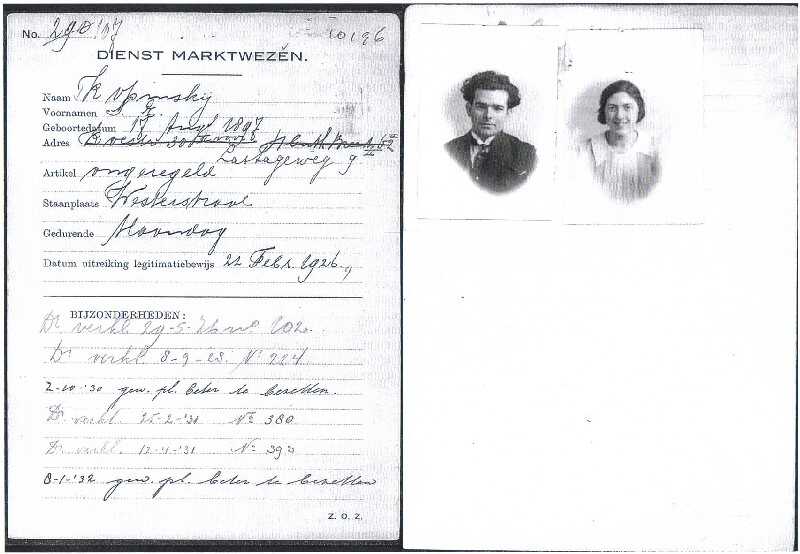 No. 290 '37 10196
DIENST MARKTWEZEN.
Naam
Voornamen
Geboortedatum 17 Aug. 1897
Adres
Lastageweg 9
Artikel ongeregeld
Staanplaats Westerstraat
Gedurende Maandag
Datum uitreiking legitimatiebewijs 22 Febr. 1926
BIJZONDERHEDEN:
Dr verkl. 29-5- No 202.
Dr verkl. 8-9-28. No 224
2-10-'30 gew. pl. beter te bezetten.
Dr verkl. 25-2-'31 No 380
Dr verkl. 13-4-'31 No 392
8-1-'32 gew. pl. beter te bezetten
Z. O. Z.